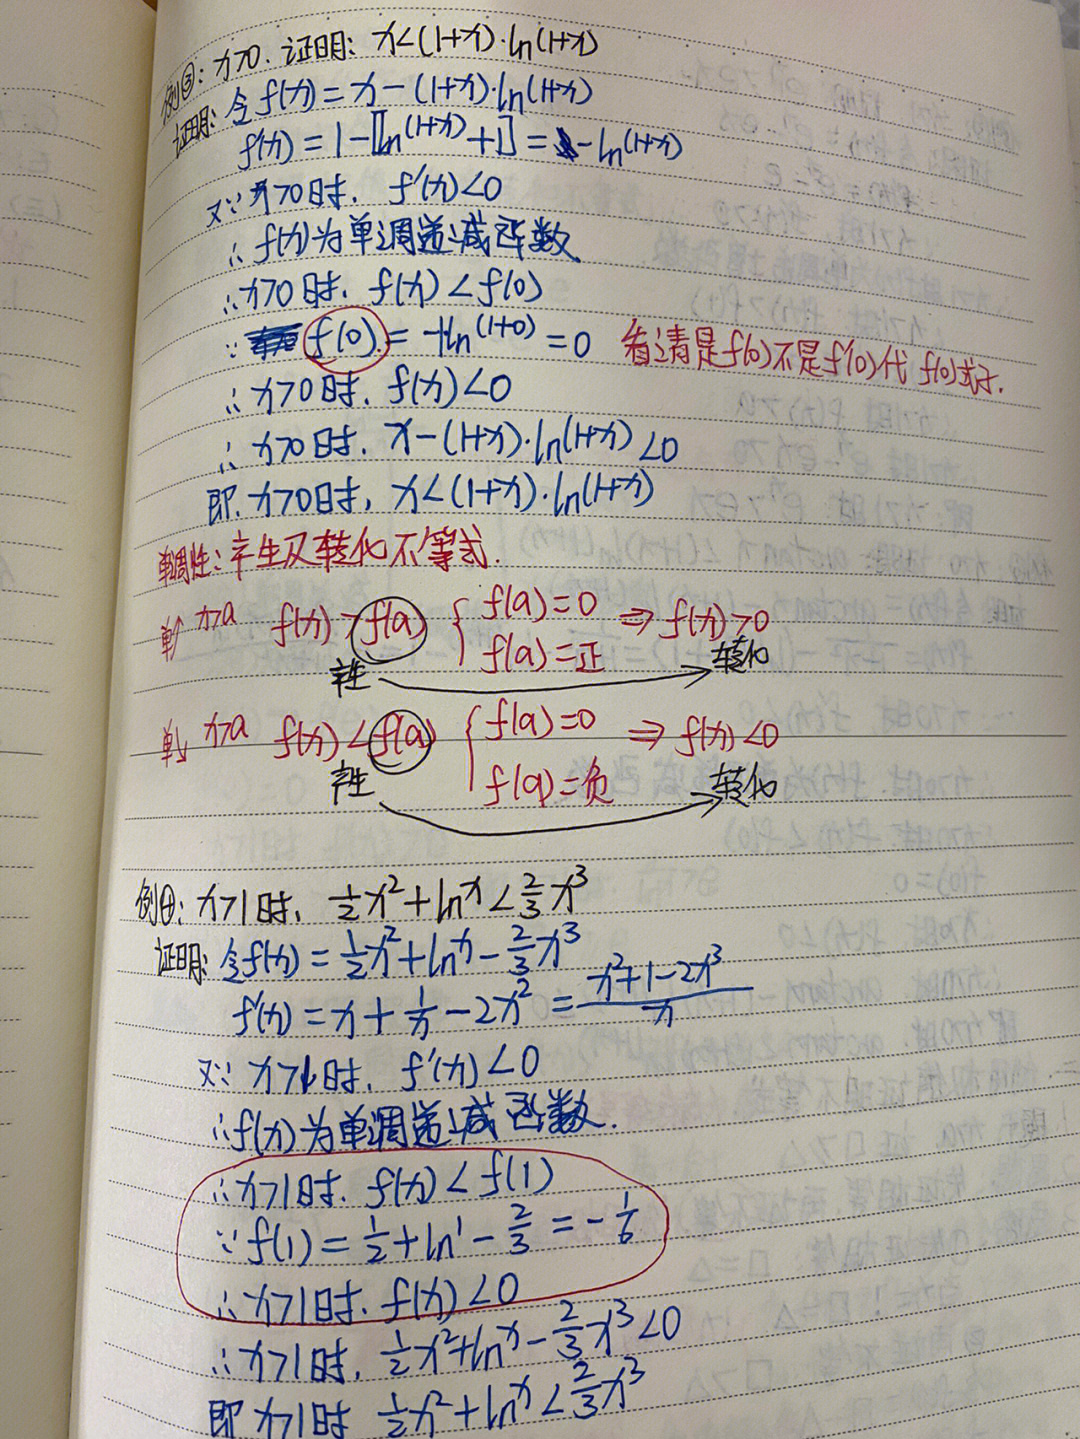 例③: x>0. 证明: x<(1+x)·ln(1+x)
证明: 令f(x)=x-(1+x)·ln(1+x)
f'(x)=1-[ln(1+x)+1]=-ln(1+x)
又∵x>0时. f'(x)<0
∴f(x)为单调递减函数
∴x>0时. f(x)<f(0)
∵f(0)=-1ln(1+0)=0 看清是f(0)不是f'(0)代f(0)式子.
∴x>0时. f(x)<0
∴x>0时. x-(1+x)·ln(1+x)<0
即x>0时, x<(1+x)·ln(1+x)
单调性: 产生及转化不等式.
单↑ x>a f(x)>f(a) { f(a)=0 f(a)=正 ⇒f(x)>0
产生 转化
单↓ x>a f(x)<f(a) { f(a)=0 f(a)=负 ⇒f(x)<0
产生 转化
例④: x>1时. ½x²+lnx<⅔x³
证明: 令f(x)=½x²+lnx-⅔x³
f'(x)=x+1/x-2x²=(x²+1-2x³)/x
又∵x>1时. f'(x)<0
∴f(x)为单调递减函数.
∴x>1时. f(x)<f(1)
∵f(1)=½+ln1-⅔=-⅙
∴x>1时. f(x)<0
∴x>1时. ½x²+lnx-⅔x³<0
即x>1时 ½x²+lnx<⅔x³